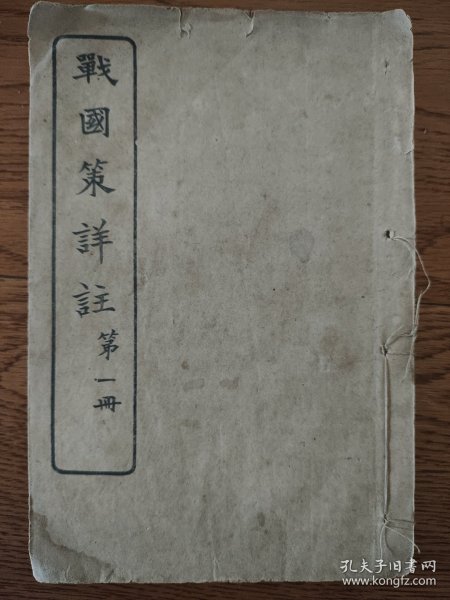 戰國策詳註
第一冊
孔夫子旧书网
www.kongfz.com